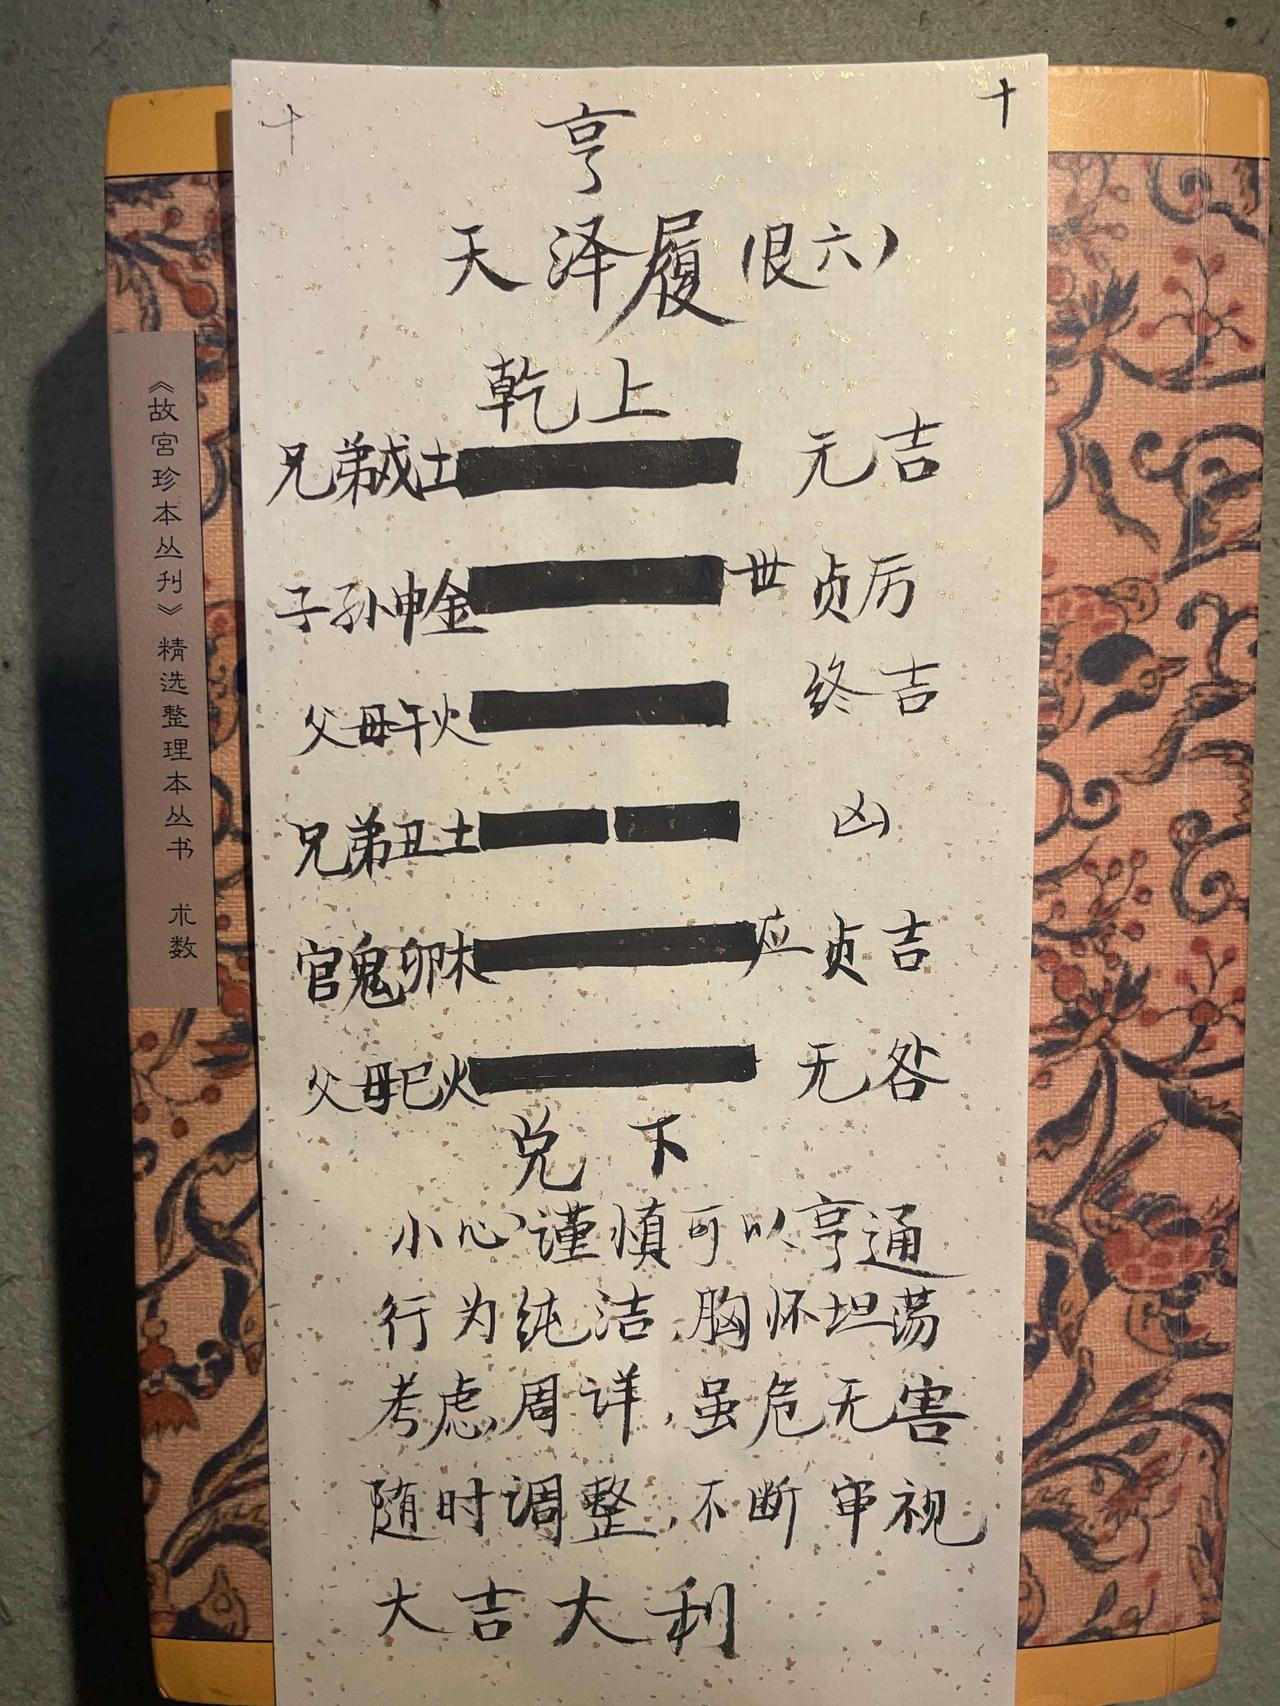 十
十
亨
天泽履(艮六)
乾上
兄弟戌土 无吉
子孙申金 世 贞厉
父母午火 终吉
兄弟丑土 凶
官鬼卯木 应 贞吉
父母巳火 无咎
兑下
小心谨慎可以亨通
行为纯洁,胸怀坦荡
考虑周详,虽危无害
随时调整,不断审视
大吉大利
《故宫珍本丛刊》精选整理本丛书 术数